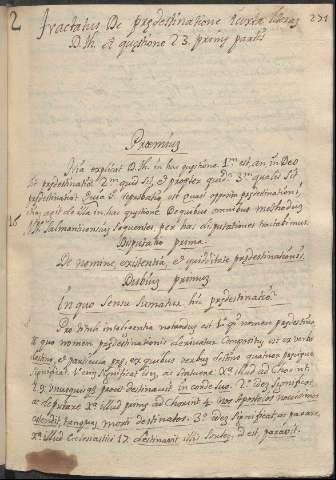 2 Tractatus De prędestinatione iuxta 271
D. Th. et quęstione 23. primę partis
Proemium
explicat D. Th. in hac quęstione. 1.m est, an in Deo
sit prędestinatio. 2.m quid sit, et 3.m qualis sit
prędestinatio. Quia reprobatio, est quasi opposita prędestinationi,
agit de illa in hac quęstione. De quibus omnibus methodum
Salmanticensium sequentes, per has disputationes tractabimus.
Disputatio prima.
De nomine, existentia, et quidditate prędestinationis.
Dubium primum
In quo sensu sumatur hic prędestinatio.
Pro tituli intelligentia notandum est 1.o quod nomen prędestino,
a quo nomen prędestinationis derivatur compositum est ex verbo
destino, et particula prę, ex quibus verbum destino quatuor
significat. 1.o enim significat idem, ac
unusquisque prout destinavit in corde suo. 2.o idem significat,
ac deputare illud primę ad Chorint. 4. nos Apostolos novissimos
ostendit, tanquam morti destinatos. 3.o idem significat, ac parare,
illud Ecclesiastici 17. destinavit illis id est paravit.